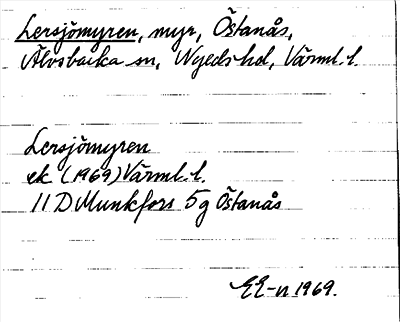 Lersjömyren, myr, Östanås,
Älvsbacka sn, Nyeds hd, Värml. l.
Lersjömyren
ek (1969) Värml. l.
11 D Munkfors 5g Östanås
EE-n 1969.